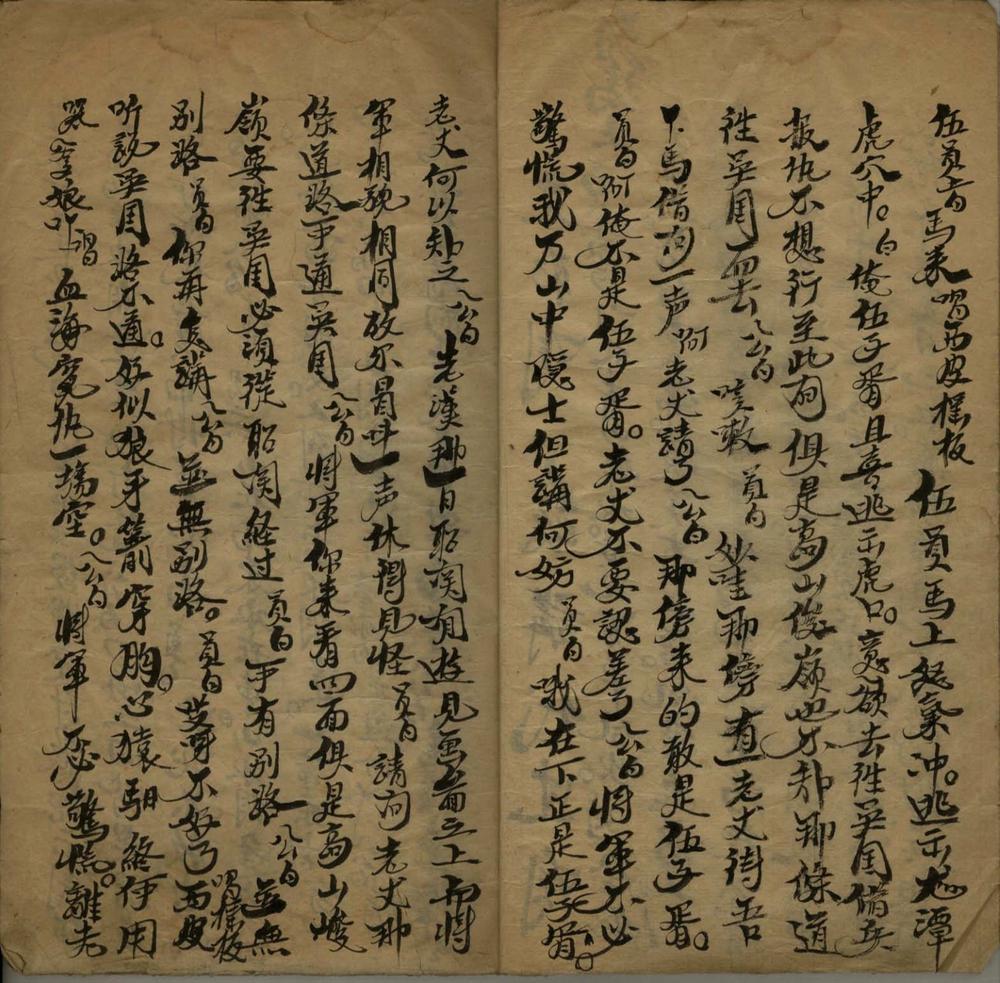 伍員上馬來唱西皮搖板 伍員馬上怒氣冲。逃示龙潭
虎穴中。白俺伍子胥且喜逃示虎口。意欲去往吳国借兵
报仇不想行至此間俱是高山俊嶺也不知那條道
往吳国而去 八公白 唉嗽 員白 妙哇那傍有一老丈待吾
下馬借问一声 啊老丈請了 八公白 那傍来的敢是伍子胥。
員白 啊俺不是伍子胥。老丈不要認差了 八公白 将軍不必
驚慌我乃山中隐士但講何妨 員白 哦在下正是伍子胥。
老丈何以知之 八公白 老漢那一日昭関有遊見畫啚之上而將
軍相貌相同故尔冒叫一声休得見怪 員白 請问老丈那
條道路可通吳国 八公白 將軍你来看四面俱是高山峻
嶺要往吳国必須從昭関経过 員白 可有別路 八公白 並無
別路 員白 你再去講 八公白 並無別路。員白 哎呀不好了 唱搖板西皮
听説吳国路不通。好似狼牙箭穿胸。心猿 馬終何用
哭 爹娘吓 唱 血海寃仇一塲空。八公白 將軍 不必驚慌。離老